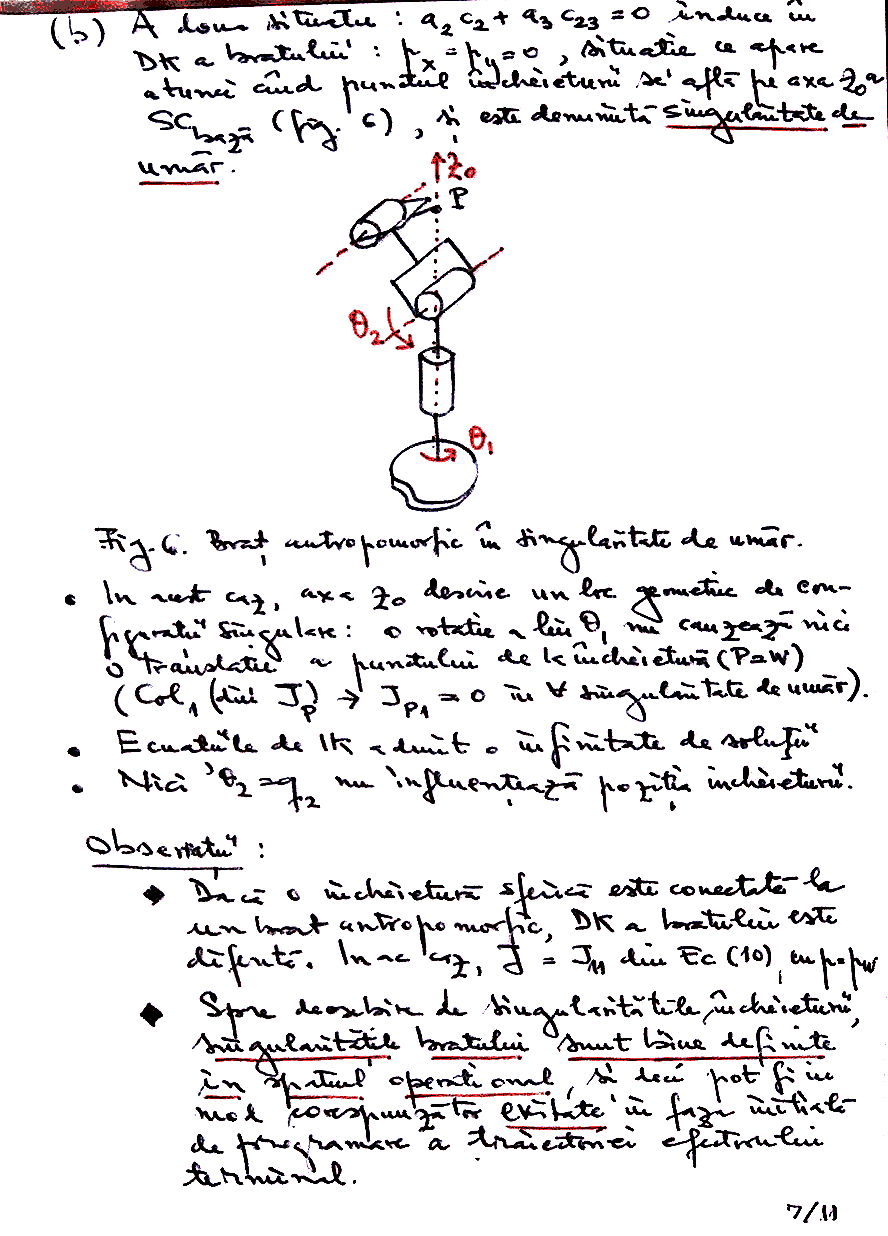 (b) A doua situație : a₂c₂ + a₃c₂₃ = 0 induce în
DK a brațului : pₓ = p_y = 0 , situație ce apare
atunci când punctul încheieturii se află pe axa Z₀ a
SC_bază (fig. 6) , și este denumită singularitate de
umăr.
Z₀
P
θ₂
θ₁
Fig. 6. Braț antropomorfic în singularitate de umăr.
• In acest caz, axa z₀ descrie un loc geometric de con-
figurații singulare : o rotație a lui θ₁ nu cauzează nici
o translație a punctului de la încheietură (P=W)
(Col₁ (din J_P) → J_P1 = 0 în ∀ singularitate de umăr).
• Ecuațiile de IK admit o infinitate de soluții
• Nici θ₂ = q₂ nu influențează poziția încheieturii.
Observații :
◆ Dacă o încheietură sferică este conectată la
un braț antropomorfic, DK a brațului este
diferită. In ac caz, J = J₁₁ din Ec (10), cu p=p_W
◆ Spre deosebire de singularitățile încheieturii,
singularitățile brațului sunt bine definite
în spațiul operațional, și deci pot fi în
mod corespunzător evitate în faza inițială
de programare a traiectoriei efectorului
terminal.
7/11